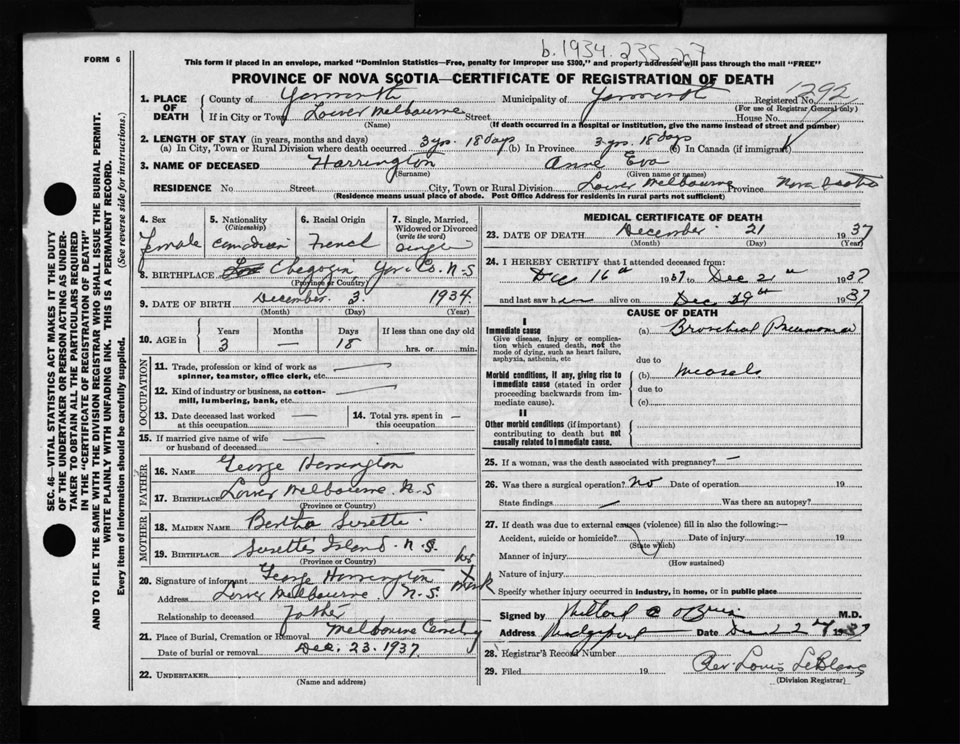 b. 1934. 235 227
FORM 6
This form if placed in an envelope, marked "Dominion Statistics—Free, penalty for improper use $300," and properly addressed will pass through the mail "FREE"
PROVINCE OF NOVA SCOTIA—CERTIFICATE OF REGISTRATION OF DEATH
1. PLACE OF DEATH
County of Yarmouth Municipality of Yarmouth Registered No. 1292
(For use of Registrar General only)
If in City or Town Lower Melbourne Street House No.
(Name) (If death occurred in a hospital or institution, give the name instead of street and number)
2. LENGTH OF STAY (in years, months and days)
(a) In City, Town or Rural Division where death occurred 3 yrs. 18 days (b) In Province 3 yrs. 18 days (c) In Canada (if immigrant)
3. NAME OF DECEASED Harrington Anne Eva
(Surname) (Given name or names)
RESIDENCE No Street City, Town or Rural Division Lower Melbourne Province Nova Scotia
(Residence means usual place of abode. Post Office Address for residents in rural parts not sufficient)
4. Sex
female
5. Nationality
(Citizenship)
Canadian
6. Racial Origin
French
7. Single, Married, Widowed or Divorced
(write the word)
Single
8. BIRTHPLACE Chegoggin, Yar. Co. N.S
(Province or Country)
9. DATE OF BIRTH December 3 1934
(Month) (Day) (Year)
10. AGE in
Years Months Days If less than one day old
3 — 18 hrs. or min.
OCCUPATION
11. Trade, profession or kind of work as spinner, teamster, office clerk, etc.
12. Kind of industry or business, as cotton-mill, lumbering, bank, etc.
13. Date deceased last worked at this occupation —
14. Total yrs. spent in this occupation —
15. If married give name of wife or husband of deceased —
FATHER
16. NAME George Harrington
17. BIRTHPLACE Lower Melbourne N.S
(Province or Country)
MOTHER
18. MAIDEN NAME Bertha Surette
19. BIRTHPLACE Surette's Island N.S.
(Province or Country)
20. Signature of informant George Harrington his X mark
Address Lower Melbourne N.S.
Relationship to deceased Father
21. Place of Burial, Cremation or Removal Melbourne Cemetery
Date of burial or removal Dec. 23. 1937.
22. UNDERTAKER
(Name and address)
MEDICAL CERTIFICATE OF DEATH
23. DATE OF DEATH December 21 1937
(Month) (Day) (Year)
24. I HEREBY CERTIFY that I attended deceased from:
Dec 16th 1937 to Dec 21st 1937
and last saw h alive on Dec 1937
CAUSE OF DEATH
I
Immediate cause
Give disease, injury or complication which caused death, not the mode of dying, such as heart failure, asphyxia, asthenia, etc
(a) Bronchial Pneumonia
due to
Morbid conditions, if any, giving rise to immediate cause (stated in order proceeding backwards from immediate cause).
(b) Measels
due to
(c)
II
Other morbid conditions (if important) contributing to death but not causally related to immediate cause.
25. If a woman, was the death associated with pregnancy? —
26. Was there a surgical operation? No Date of operation 19
State findings Was there an autopsy?
27. If death was due to external causes (violence) fill in also the following:—
Accident, suicide or homicide? Date of injury 19
(State which)
Manner of injury
(How sustained)
Nature of injury
Specify whether injury occurred in industry, in home, or in public place
Signed by Willard C O'Brien M.D.
Address Date Dec 22 1937
28. Registrar's Record Number
29. Filed 19 Rev. Louis LeBlanc
(Division Registrar)
SEC. 46—VITAL STATISTICS ACT MAKES IT THE DUTY OF THE UNDERTAKER OR PERSON ACTING AS UNDERTAKER TO OBTAIN ALL THE PARTICULARS REQUIRED IN THE "CERTIFICATE OF REGISTRATION OF DEATH" AND TO FILE THE SAME WITH THE DIVISION REGISTRAR WHO SHALL ISSUE THE BURIAL PERMIT.
WRITE PLAINLY WITH UNFADING INK. THIS IS A PERMANENT RECORD.
Every item of information should be carefully supplied. (See reverse side for instructions.)